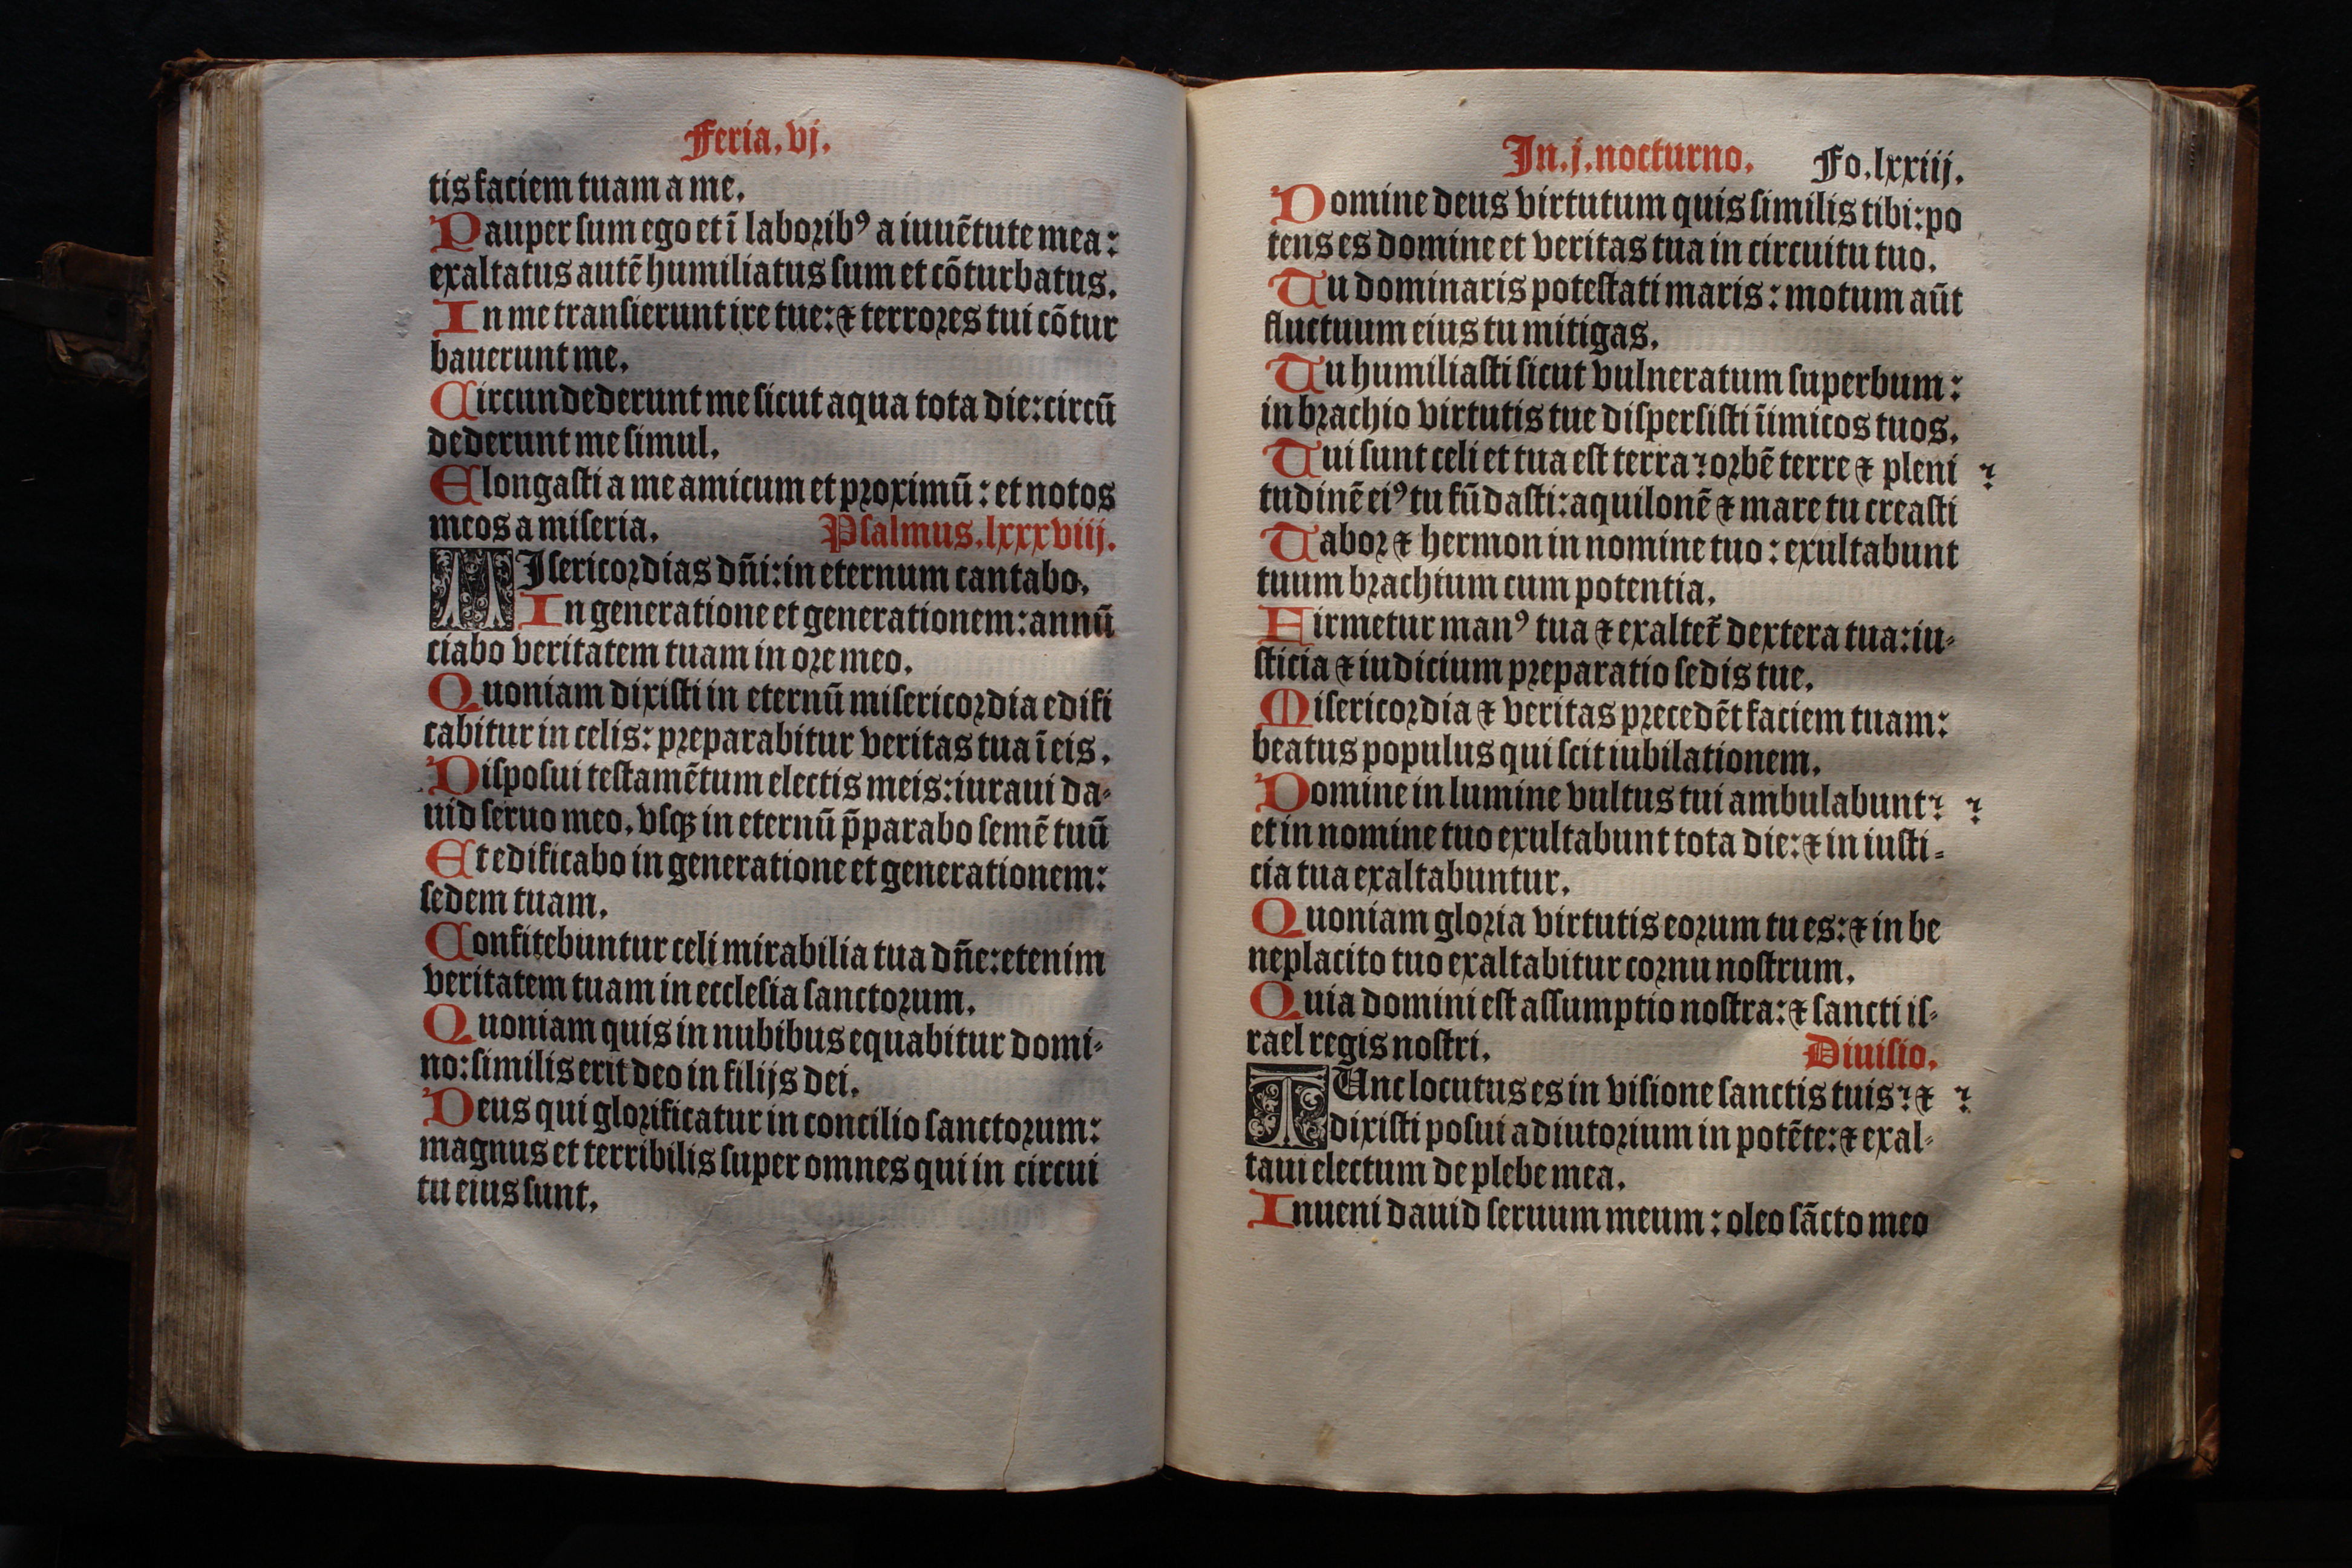 Feria.vj.
tis faciem tuam a me.
Pauper sum ego et ī laborib⁹ a iuuētute mea:
exaltatus autē humiliatus sum et cōturbatus.
In me transierunt ire tue: ⁊ terrores tui cōtur
bauerunt me.
Circundederunt me sicut aqua tota die: circū
dederunt me simul.
Elongasti a me amicum et proximū: et notos
meos a miseria.
Psalmus.lxxxviij.
MIsericordias dñi: in eternum cantabo.
In generatione et generationem: annū
ciabo veritatem tuam in ore meo.
Quoniam dixisti in eternū misericordia edifi
cabitur in celis: preparabitur veritas tua ī eis.
Disposui testamētum electis meis: iuraui da-
uid seruo meo. vsqꝫ in eternū p̄parabo semē tuū
Et edificabo in generatione et generationem:
sedem tuam.
Confitebuntur celi mirabilia tua dñe: etenim
veritatem tuam in ecclesia sanctorum.
Quoniam quis in nubibus equabitur domi-
no: similis erit deo in filijs dei.
Deus qui glorificatur in concilio sanctorum:
magnus et terribilis super omnes qui in circui
tu eius sunt.
In.j.nocturno. Fo.lxxiij.
Domine deus virtutum quis similis tibi: po
tens es domine et veritas tua in circuitu tuo.
Tu dominaris potestati maris: motum aūt
fluctuum eius tu mitigas.
Tu humiliasti sicut vulneratum superbum:
in brachio virtutis tue dispersisti īimicos tuos.
Tui sunt celi et tua est terra? orbē terre ⁊ pleni ?
tudinē ei⁹ tu fūdasti: aquilonē ⁊ mare tu creasti
Tabor ⁊ hermon in nomine tuo: exultabunt
tuum brachium cum potentia.
Firmetur man⁹ tua ⁊ exaltet̃ dextera tua: iu-
sticia ⁊ iudicium preparatio sedis tue.
Misericordia ⁊ veritas precedēt faciem tuam:
beatus populus qui scit iubilationem.
Domine in lumine vultus tui ambulabunt? ?
et in nomine tuo exultabunt tota die: ⁊ in iusti-
cia tua exaltabuntur.
Quoniam gloria virtutis eorum tu es: ⁊ in be
neplacito tuo exaltabitur cornu nostrum.
Quia domini est assumptio nostra: ⁊ sancti is-
rael regis nostri.
Diuisio.
TUnc locutus es in visione sanctis tuis? ⁊ ?
dixisti posui adiutorium in potēte: ⁊ exal-
taui electum de plebe mea.
Inueni dauid seruum meum: oleo sācto meo